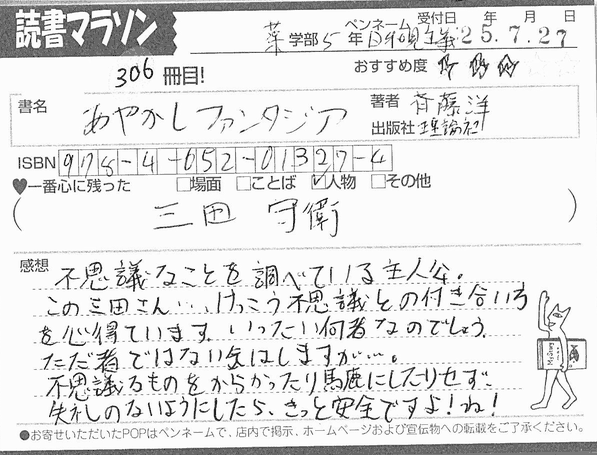 読書マラソン
薬学部 5年 ペンネーム 日和見主義 受付日 年 月 日 25.7.27
306冊目!
おすすめ度 ☆☆☆
書名 あやかしファンタジア
著者 斉藤洋
出版社 理論社
ISBN 978-4-652-01327-4
♥一番心に残った □場面 □ことば ☑人物 □その他
( 三田 守衛 )
感想 不思議なことを調べている主人公。
この三田さん…、けっこう不思議との付き合い方
を心得ています。いったい何者なのでしょう。
ただ者ではない気はしますが…。
不思議るものをからかったり馬鹿にしたりせず、
失礼のないようにしたら、きっと安全ですよ!ね!
●お寄せいただいたPOPはペンネームで、店内で掲示、ホームページおよび宣伝物への転載をご了承ください。